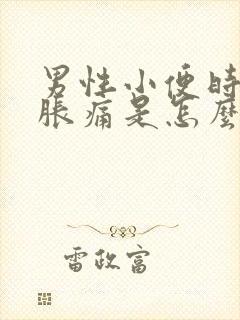 男性小便时
胀痛是怎麼
雷政富